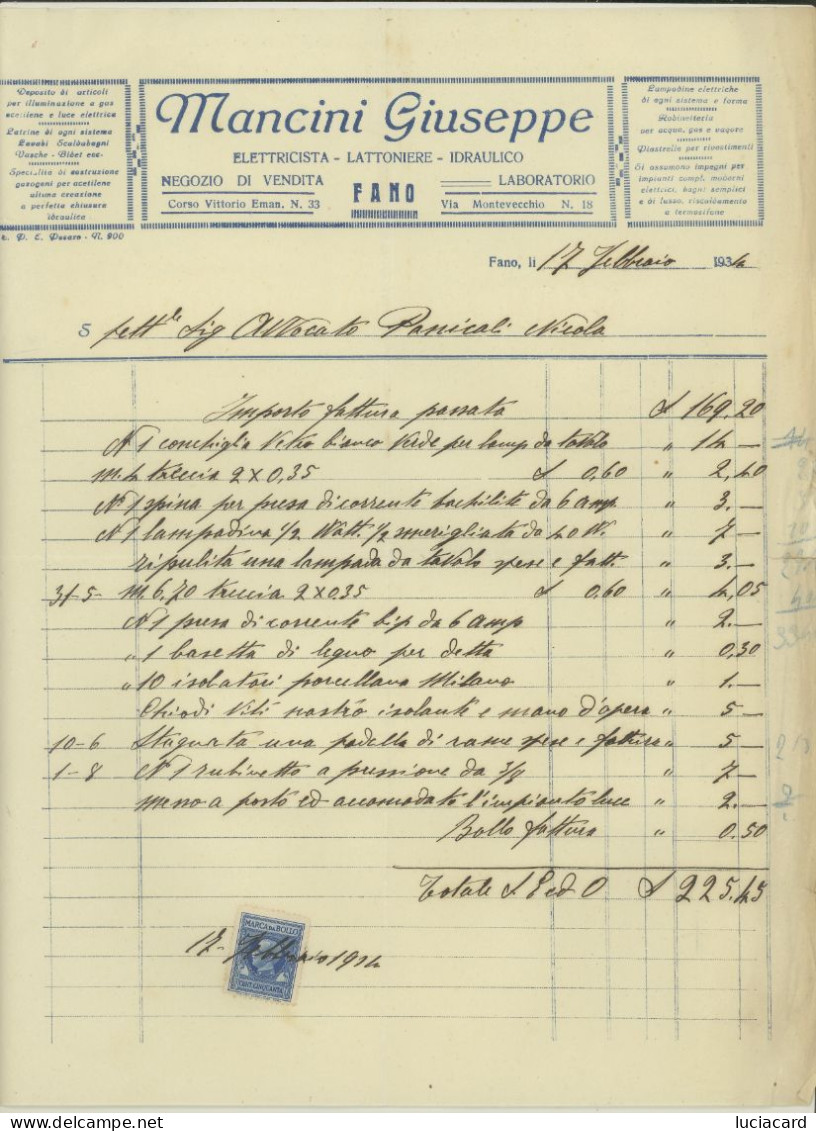 Deposito di articoli
per illuminazione a gas
acetilene e luce elettrica
Latrine di ogni sistema
Lavabi Scaldabagni
Vasche - Bidet ecc.
Specialità di costruzione
gasogeni per acetilene
ultima creazione
a perfetta chiusura
idraulica
t. P. E. Pesaro - N. 900
Mancini Giuseppe
ELETTRICISTA - LATTONIERE - IDRAULICO
NEGOZIO DI VENDITA FANO LABORATORIO
Corso Vittorio Eman. N. 33 Via Montevecchio N. 18
Lampadine elettriche
di ogni sistema e forma
Rubinetteria
per acqua, gas e vapore
Piastrelle per rivestimenti
Si assumono impegni per
impianti compl. moderni
elettrici, bagni semplici
e di lusso, riscaldamento
a termosifone
Fano, li 17 Febbraio 1934
S pett.le Sig Avvocato Panicali Nicola
Importo fattura passata £ 169.20
N 1 conchiglia vetro bianco verde per lamp da tavolo " 14 —
m. 4 treccia 2 x 0,35 £ 0,60 " 2,40
N 1 spina per presa di corrente bachilite da 6 amp " 3.—
N 1 lampadina 1/2 Watt. 1/2 smerigliata da 40 W. " 7 —
ripulita una lampada da tavolo spese e fatt. " 3.—
31-5- m. 6,70 treccia 2 x 0.35 £ 0,60 " 4,05
N 1 presa di corrente bip da 6 amp " 2.—
" 1 basetta di legno per detta " 0,30
" 10 isolatori porcellana Milano " 1.—
Chiodi viti nastro isolante e mano d'opera " 5 —
10-6 Stagnata una padella di rame spese e fattura " 5 —
1-8 N 1 rubinetto a pressione da 3/8 " 7 —
meno a posto ed accomodato l'impianto luce " 2.—
Bollo fattura " 0.50
Totale S E ed O £ 225.45
MARCA DA BOLLO
CENT. CINQUANTA
17 Febbraio 1934
luciacard